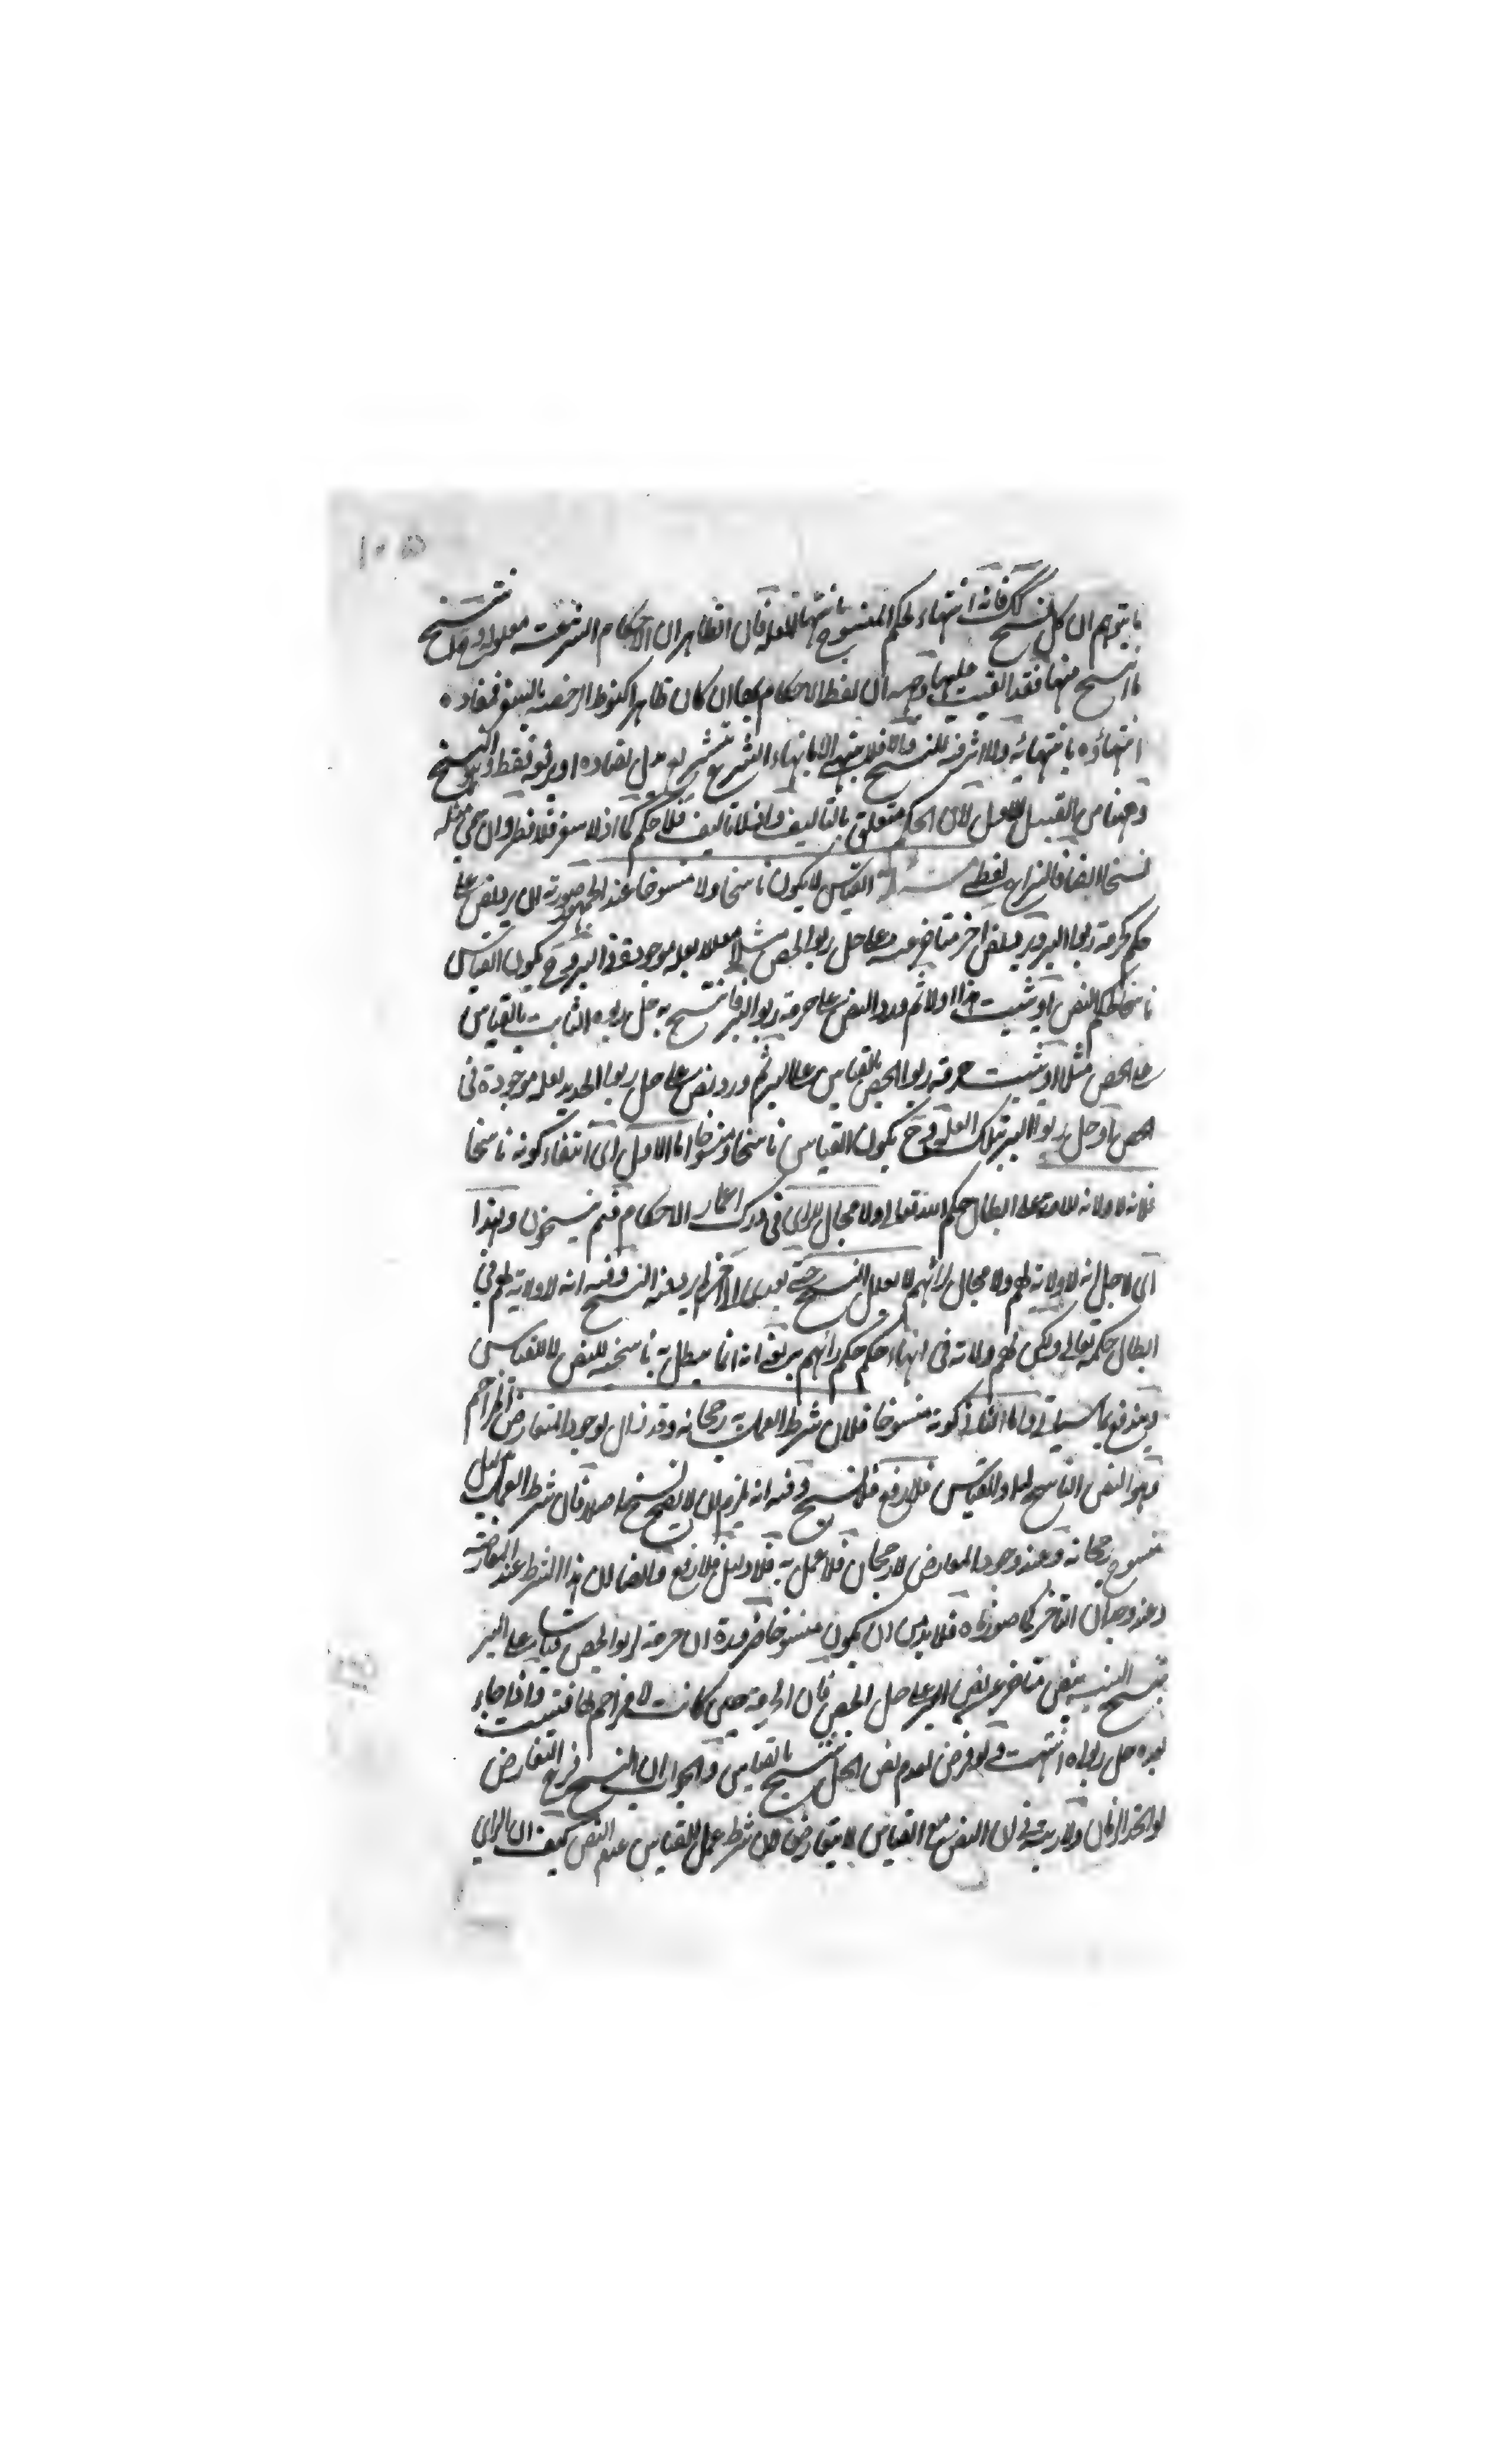 ۱۰۵
ما يتوهم ان كل نسخ كك فانه انتهاء لحكم المنسوخ بانتهاء العلة فان الظاهر ان الاحكام الشرعية معلولة
ما انسخ منها فقد انتفت عليها وجه ان لفظ الاحكام كان ظاهر كنوط الرخصة بالسفر فمفاده
انتهاؤه بانتهائه ولا اثر فيه للنسخ والا فلا ينتهي الا بانهاء الشرع بتشريع بدل يضاده او برفعه فقط وهو النسخ
وههنا من القبيل الاول لان الحكم متعلق بالتاليف واذ لا تاليف فلا حكم كما اذ لا سفر فلا فطر وان سمى مثله
نسخا ايضا فالنزاع لفظي مسئلة القياس لا يكون ناسخا ولا منسوخا عند الجمهور صورته ان يرد نص على
حكم كحرمة ربوا البر ويرد نص اخر متاخر عنه على حل ربوا الحمص مثلا معللا بعلة موجودة في البر وح يكون القياس
ناسخا لحكم النص او يثبت هذا اولا ثم ورد النص على حرمة ربوا البر فانتسخ به حل ربوه الثابت بالقياس
على الحمص مثلا او يثبت حرمة ربوا الحمص بالقياس على البر ثم ورد نص على حل ربوا الحديد لعلة موجودة في
الحمص او حل ربوا البر بتلك العلة وح يكون القياس ناسخا ومنسوخا اما الاول اي انتفاء كونه ناسخا
فلانه لا ولاية للامة على ابطال حكم الله تعالى ولا مجال للراي في درك اعمار الاحكام فهم ينسخون ولهذا
اي لاجل انه لا ولاية لهم ولا مجال لرائهم لا يعلل النسخ حتى يعدى الاخر وفيه انه لا ولاية لهم في
ابطال حكمه تعالى ولكن لهم ولاية في انهاء حكم حكم رائهم بمعنى انه انما يبطل به ناسخية للنص لا للقياس
ويندفع بما سياتي واما الثاني كونه منسوخا فلان شرط العمل به رجحانه وقد زال لوجود المتعارض المزاحم
وهو النص الناسخ له او القياس فلا رفع فلا نسخ وفيه انه يلزم ان لا يصح نسخ اصلا فان شرط العمل بدليل
منسوخ رجحانه وعند وجود المعارض لا رجحان فلا عمل به فلا دليل فلا رفع وايضا ان هذا الشرط عند المعارضة
وعند وجدان التاخر كما صورناه فلا بد من ان يكون منسوخا ضرورة ان حرمة ربوا الحمص قياسا على البر
ينسخ البتة بنص متاخر عن نص البر على حل الحمص فان الحرمة حين كانت لا مزاحم لها فتثبت واذا جاء
بعده حل ربوه انتهت ولو فرض لعدم نص الحل نسخ بالقياس والجواب ان النسخ فرع التعارض
لو اتحد الزمان ولا ريب في ان النص مع القياس لا يتعارض لان شرط عمل القياس عدم النص كيف ان الراي